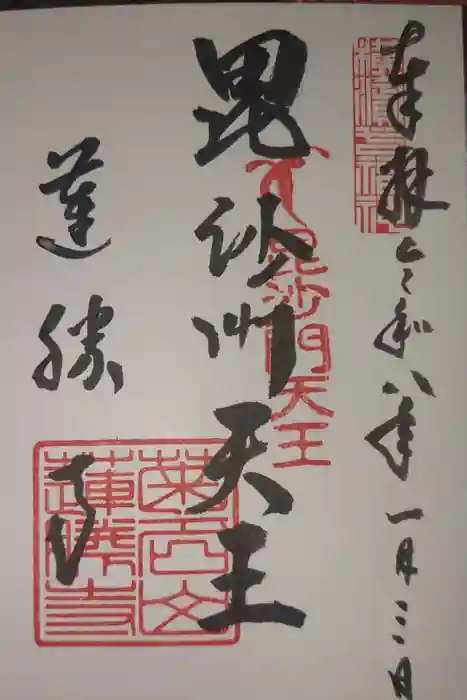 奉拝 令和八年 一月三日
横濱七福神
毘沙門天王
毘沙門天王
蓮勝寺
蓮勝寺